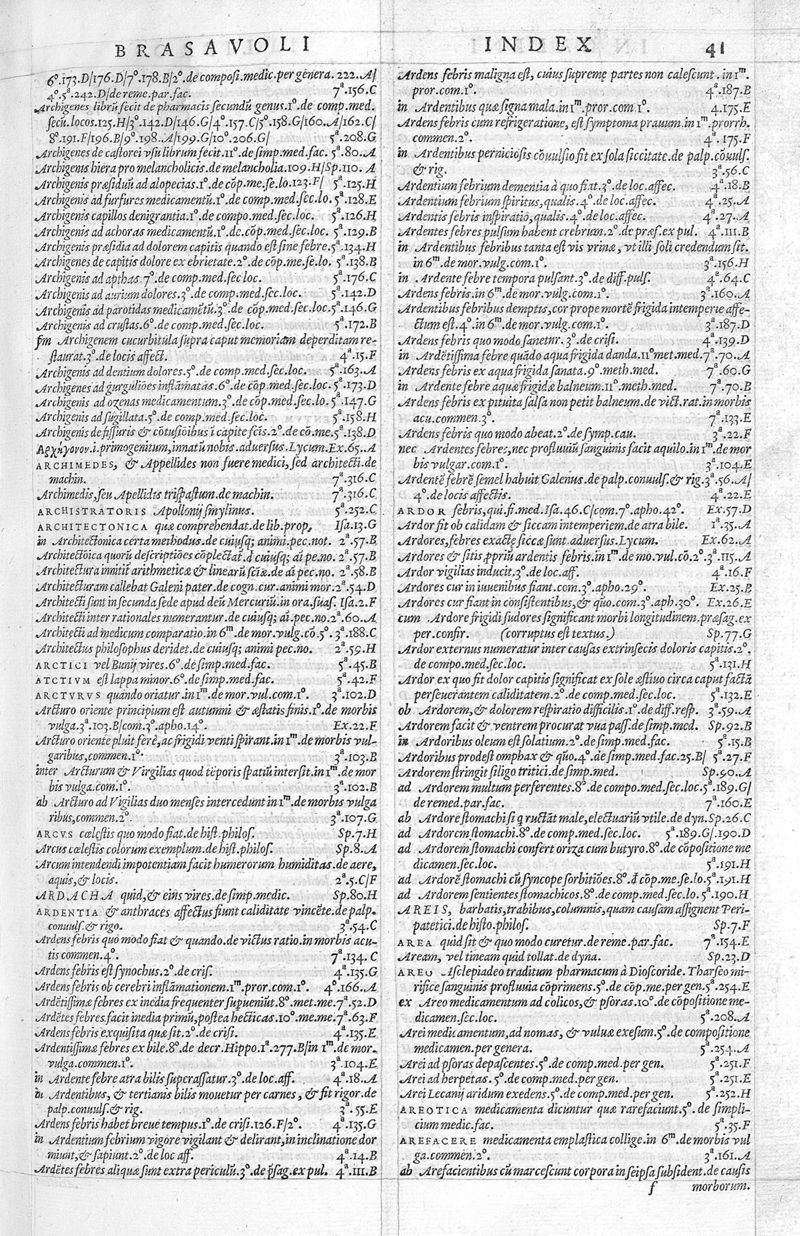 BRASAVOLI
6º.173.D/176.D/7º.178.B/2º.de composi.medic.per genera. 222.A/
4º.5ª.242.D/de reme.par.fac. 7ª.156.C
Archigenes librū fecit de pharmacis secundū genus.1º.de comp.med.
secū.locos.125.H/3º.142.D/146.G/4º.157.C/5º.158.G/160.A/162.C/
8º.191.F/196.B/9º.198.A/199.G/10º.206.G/ 5ª.208.G
Archigenes de castorei vsu librum fecit.11º.de simp.med.fac. 5ª.80.A
Archigenis hiera pro melancholicis.de melancholia.109.H/Sp.110.A
Archigenis præsidiū ad alopecias.1º.de cōp.me.se.lo.123.F/ 5ª.125.H
Archigenis ad furfures medicamentū.1º.de comp.med.sec.lo. 5ª.128.E
Archigenis capillos denigrantia.1º.de compo.med.sec.loc. 5ª.126.H
Archigenis ad achoras medicamentū.1º.de cōp.med.sec.loc. 5ª.129.B
Archigenis præsidia ad dolorem capitis quando est sine febre.5ª.134.H
Archigenes de capitis dolore ex ebrietate.2º.de cōp.me.se.lo. 5ª.138.B
Archigenis ad apthas.7º.de comp.med.sec loc. 5ª.176.C
Archigenis ad aurium dolores.3º.de comp.med.sec.loc. 5ª.142.D
Archigenis ad parotidas medicamētū.3º.de cōp.med.sec.loc.5ª.146.G
Archigenis ad crustas.6º.de comp.med.sec.loc. 5ª.172.B
sm Archigenem cucurbitula supra caput memoriam deperditam re-
staurat.3º.de locis affect. 4ª.15.F
Archigenis ad dentium dolores.5º.de comp.med.sec.loc. 5ª.163.A
Archigenes ad gurguliōes inflāmatas.6º.de cōp.med.sec.loc. 5ª.173.D
Archigenis ad ozenas medicamentum.3º.de cōp.med.sec.lo. 5ª.147.G
Archigenis ad sugillata.5º.de comp.med.sec.loc. 5ª.158.H
Archigenis de fissuris & cōtusiōibus ī capite fcīs.2º.de cō.me.5ª.138.D
Αρχήγονον.i.primogenitum,innatū nobis.aduersus.Lycum.Ex.65.A
ARCHIMEDES, & Appellides non fuere medici, sed architecti.de
machin. 7ª.316.C
Archimedis,seu Apellidis trispastum.de machin. 7ª.316.C
ARCHISTRATORIS Apollonij smylinus. 5ª.252.C
ARCHITECTONICA quæ comprehendat.de lib.prop, Isa.13.G
in Architectonica certa methodus.de cuiusq; animi.pec.not. 2ª.57.B
Architectōica quorū descriptiōes cōplectat.d cuiusq; aī pe.no. 2ª.57.B
Architectura innitit arithmeticæ & linearū sciæ.de aī pec.no. 2ª.58.B
Architecturam callebat Galeni pater.de cogn.cur.animi mor.2ª.54.D
Architecti sunt in secunda sede apud deū Mercuriū.in ora.suas. Isa.2.F
Architecti inter rationales numerantur.de cuiusq; ai.pec.no.2ª.60.A
Architecti ad medicum comparatio.in 6ᵐ.de mor.vulg.cō.5º.3ª.188.C
Architectus philosophus deridet.de cuiusq; animi pec.no. 2ª.59.H
ARCTICI vel Bunij vires.6º.de simp.med.fac. 5ª.45.B
ATCTIVM est lappa minor.6º.de simp.med.fac. 5ª.42.F
ARCTVRVS quando oriatur in 1ᵐ.de mor.vul.com.1º. 3ª.102.D
Arcturo oriente principium est autumni & æstatis finis.1º.de morbis
vulga.3ª.103.B/com.3º.apho.14º. Ex.22.F
Arcturo oriente pluit ferè,ac frigidi venti spirant.in 1ᵐ.de morbis vul-
garibus,commen.1º. 3ª.103.B
inter Arcturum & Virgilias quod tēporis spatiū intersit.in 1ᵐ.de mor
bis vulga.com.1º. 3ª.102.B
ab Arcturo ad Vigilias duo menses intercedunt in 1ᵐ.de morbis vulga
ribus,commen.2º. 3ª.107.G
ARCVS cœlestis quo modo fiat.de hist.philos. Sp.7.H
Arcus cœlestis colorum exemplum.de hist.philos. Sp.8.A
Arcum intendendi impotentiam facit humerorum humiditas.de aere,
aquis,& locis. 2ª.5.C/F
ARDACHA quid,& eius vires.de simp.medic. Sp.80.H
ARDENTIA & anthraces affectus fiunt caliditate vincēte.de palp.
conuuls.& rigo. 3ª.54.C
Ardens febris quo modo fiat & quando.de victus ratio.in morbis acu-
tis commen.4º. 7ª.134.C
Ardens febris est synochus.2º.de cris. 4ª.135.G
Ardens febris ob cerebri inflāmationem.1ᵐ.pror.com.1º. 4º.166.A
Ardētissimæ febres ex inedia frequenter supeniūt.8º.met.me.7ª.52.D
Ardētes febres facit inedia primū,postea hecticas.10º.me.me.7ª.63.F
Ardens febris exquisita quæ sit.2º.de crisi. 4ª.135.E
Ardentissimæ febres ex bile.8º.de decr.Hippo.1ª.277.B/in 1ᵐ.de mor.
vulga.commen.1º. 3ª.104.E
in Ardente febre atra bilis supcrassatur.3º.de loc.aff. 4ª.18.A
in Ardentibus,& tertianis bilis mouetur per carnes, & fit rigor.de
palp.conuuls.& rig. 3ª.55.E
Ardens febris habet breue tempus.1º.de crisi.126.F/2º. 4ª.135.G
in Ardentium febrium vigore vigilant & delirant,in inclinatione dor
miunt,& sapiunt.2º.de loc aff. 4ª.14.B
Ardētes febres aliquæ sunt extra periculū.3º.de psag.ex pul. 4ª.111.B
INDEX 41
Ardens febris maligna est, cuius supremæ partes non calescunt. in 1ᵐ.
pror.com.1º. 4ª.187.B
in Ardentibus quæ signa mala.in 1ᵐ.pror.com 1º. 4.175.E
Ardens febris cum refrigeratione, est symptoma prauum.in 1ᵐ.prorrh.
commen.2º. 4ª.175.F
in Ardentibus perniciosis cōuulsio fit ex sola siccitate.de palp.cōuuls.
& rig. 3ª.56.C
Ardentium febrium dementia à quo fiat.3º.de loc.affec. 4ª.18.B
Ardentium febrium spiritus,qualis.4º.de loc.affec. 4ª.25.A
Ardentis febris inspiratio,qualis.4º.de loc.affec. 4ª.27.A
Ardentes febres pulsum habent crebrum.2º.de præs.ex pul. 4ª.111.B
in Ardentibus febribus tanta est vis vrinæ, vt illi soli credendum sit.
in 6ᵐ.de mor.vulg.com.1º. 3ª.156.H
in Ardente febre tempora pulsant.3º.de diff.puls. 4ª.64.C
Ardens febris.in 6ᵐ.de mor.vulg.com.1º. 3ª.160.A
Ardentibus febribus demptis,cor prope mortē frigida intemperie affe-
ctum est.4º.in 6ᵐ.de mor.vulg.com.1º. 3ª.187.D
Ardens febris quo modo sanetur. 3º.de crisi. 4ª.139.D
in Ardētissima febre quādo aqua frigida danda.11ºmet.med.7ª.70.A
Ardens febris ex aqua frigida sanata.9º.meth.med. 7ª.60.G
in Ardente febre aquæ frigidæ balneum.11º.meth.med. 7ª.70.B
Ardens febris ex pituita salsa non petit balneum.de vict.rat.in morbis
acu.commen.3º. 7ª.133.E
Ardens febris quo modo abeat.2º.de symp.cau. 3ª.22.F
nec Ardentes febres,nec profluuiū sanguinis facit aquilo.in 1ᵐ.de mor
bis vulgar.com.1º. 3ª.104.E
Ardentē febrē semel habuit Galenus.de palp.conuuls.& rig.3ª.56.A/
4º.de locis affectis. 4ª.22.E
ARDOR febris,qui.si.med.Isa.46.C/com.7º.apho.42º. Ex.57.D
Ardor fit ob calidam & siccam intemperiem.de atra bile. 1ª.35.A
Ardores,febres exacte siccæ sunt.aduersus.Lycum. Ex.62.A
Ardores & sitis ppriū ardentis febris.in 1ᵐ.de mo.vul.cō.2º.3ª.115.A
Ardor vigilias inducit.3º.de loc.aff. 4ª.16.F
Ardores cur in iuuenibus fiant.com.3º.apho.29º. Ex.25.B
Ardores cur fiant in consistentibus,& quo.com.3º.aph.30º. Ex.26.E
cum Ardore frigidi sudores significant morbi longitudinem.præsag.ex
per.confir. (corruptus est textus.) Sp.77.G
Ardor externus numeratur inter causas extrinsecis doloris capitis.2º.
de compo.med.sec.loc. 5ª.131.H
Ardor ex quo fit dolor capitis significat ex sole æstiuo circa caput factā
perseuerantem caliditatem.2º.de comp.med.sec.loc. 5ª.132.E
ob Ardorem,& dolorem respiratio difficilis.1º.de diff.resp. 3ª.59.A
Ardorem facit & ventrem procurat vua pass.de simp.med. Sp.92.B
in Ardoribus oleum est solatium.2º.de simp.med.fac. 5ª.15.B
Ardoribus prodest omphax & quo.4º.de simp.med.fac.25.B/ 5ª.27.F
Ardorem stringit siligo tritici.de simp.med. Sp.90.A
ad Ardorem multum perferentes.8º.de compo.med.sec.loc.5ª.189.G/
de remed.par.fac. 7ª.160.E
ab Ardore stomachi si q ructāt male,electuariū vtile.de dyn.Sp.26.C
ad Ardorem stomachi.8º.de comp.med.sec.loc. 5ª.189.G/.190.D
ad Ardorem stomachi confert oriza cum butyro.8º.de cōpositione me
dicamen.sec.loc. 5ª.191.H
ad Ardorē stomachi cū syncope sorbitiōes.8º.d cōp.me.se.lo.5ª.191.A
ad Ardorem sentientes stomachicos.8º.de comp.med.sec.loc.5ª.190.H
AREIS, barbatis,trabibus,columnis,quam causam assignent Peri-
patetici.de histo.philos. Sp.7.F
AREA quid sit & quo modo curetur.de reme.par.fac. 7ª.154.E
Aream, vel tineam quid tollat.de dyna. Sp.23.D
AREO Asclepiadeo traditum pharmacum à Dioscoride. Tharseo mi-
rifice sanguinis profluuia cōprimens.5º.de cōp.me.per gen.5ª.254.E
ex Areo medicamentum ad colicos,& psoras.10º.de cōpositione me-
dicamen.sec.loc. 5ª.208.A
Arei medicamentum,ad nomas, & vuluæ exesum.5º.de compositione
medicamen.per genera. 5ª.254.A
Arei ad psoras depascentes.5º.de comp.med.per gen. 5ª.251.F
Arei ad herpetas. 5º.de comp.med.per gen. 5ª.251.E
Arei Lecanij aridum exedens.5º.de comp.med.per gen. 5ª.252.H
AREOTICA medicamenta dicuntur quæ rarefaciunt.5º. de simpli-
cium medic.fac. 5ª.35.F
AREFACERE medicamenta emplastica collige.in 6ᵐ.de morbis vul
ga.commen.2º. 3ª.161.A
ab Arefacientibus cū marcescunt corpora in seipsa subsident.de causis
f morborum.